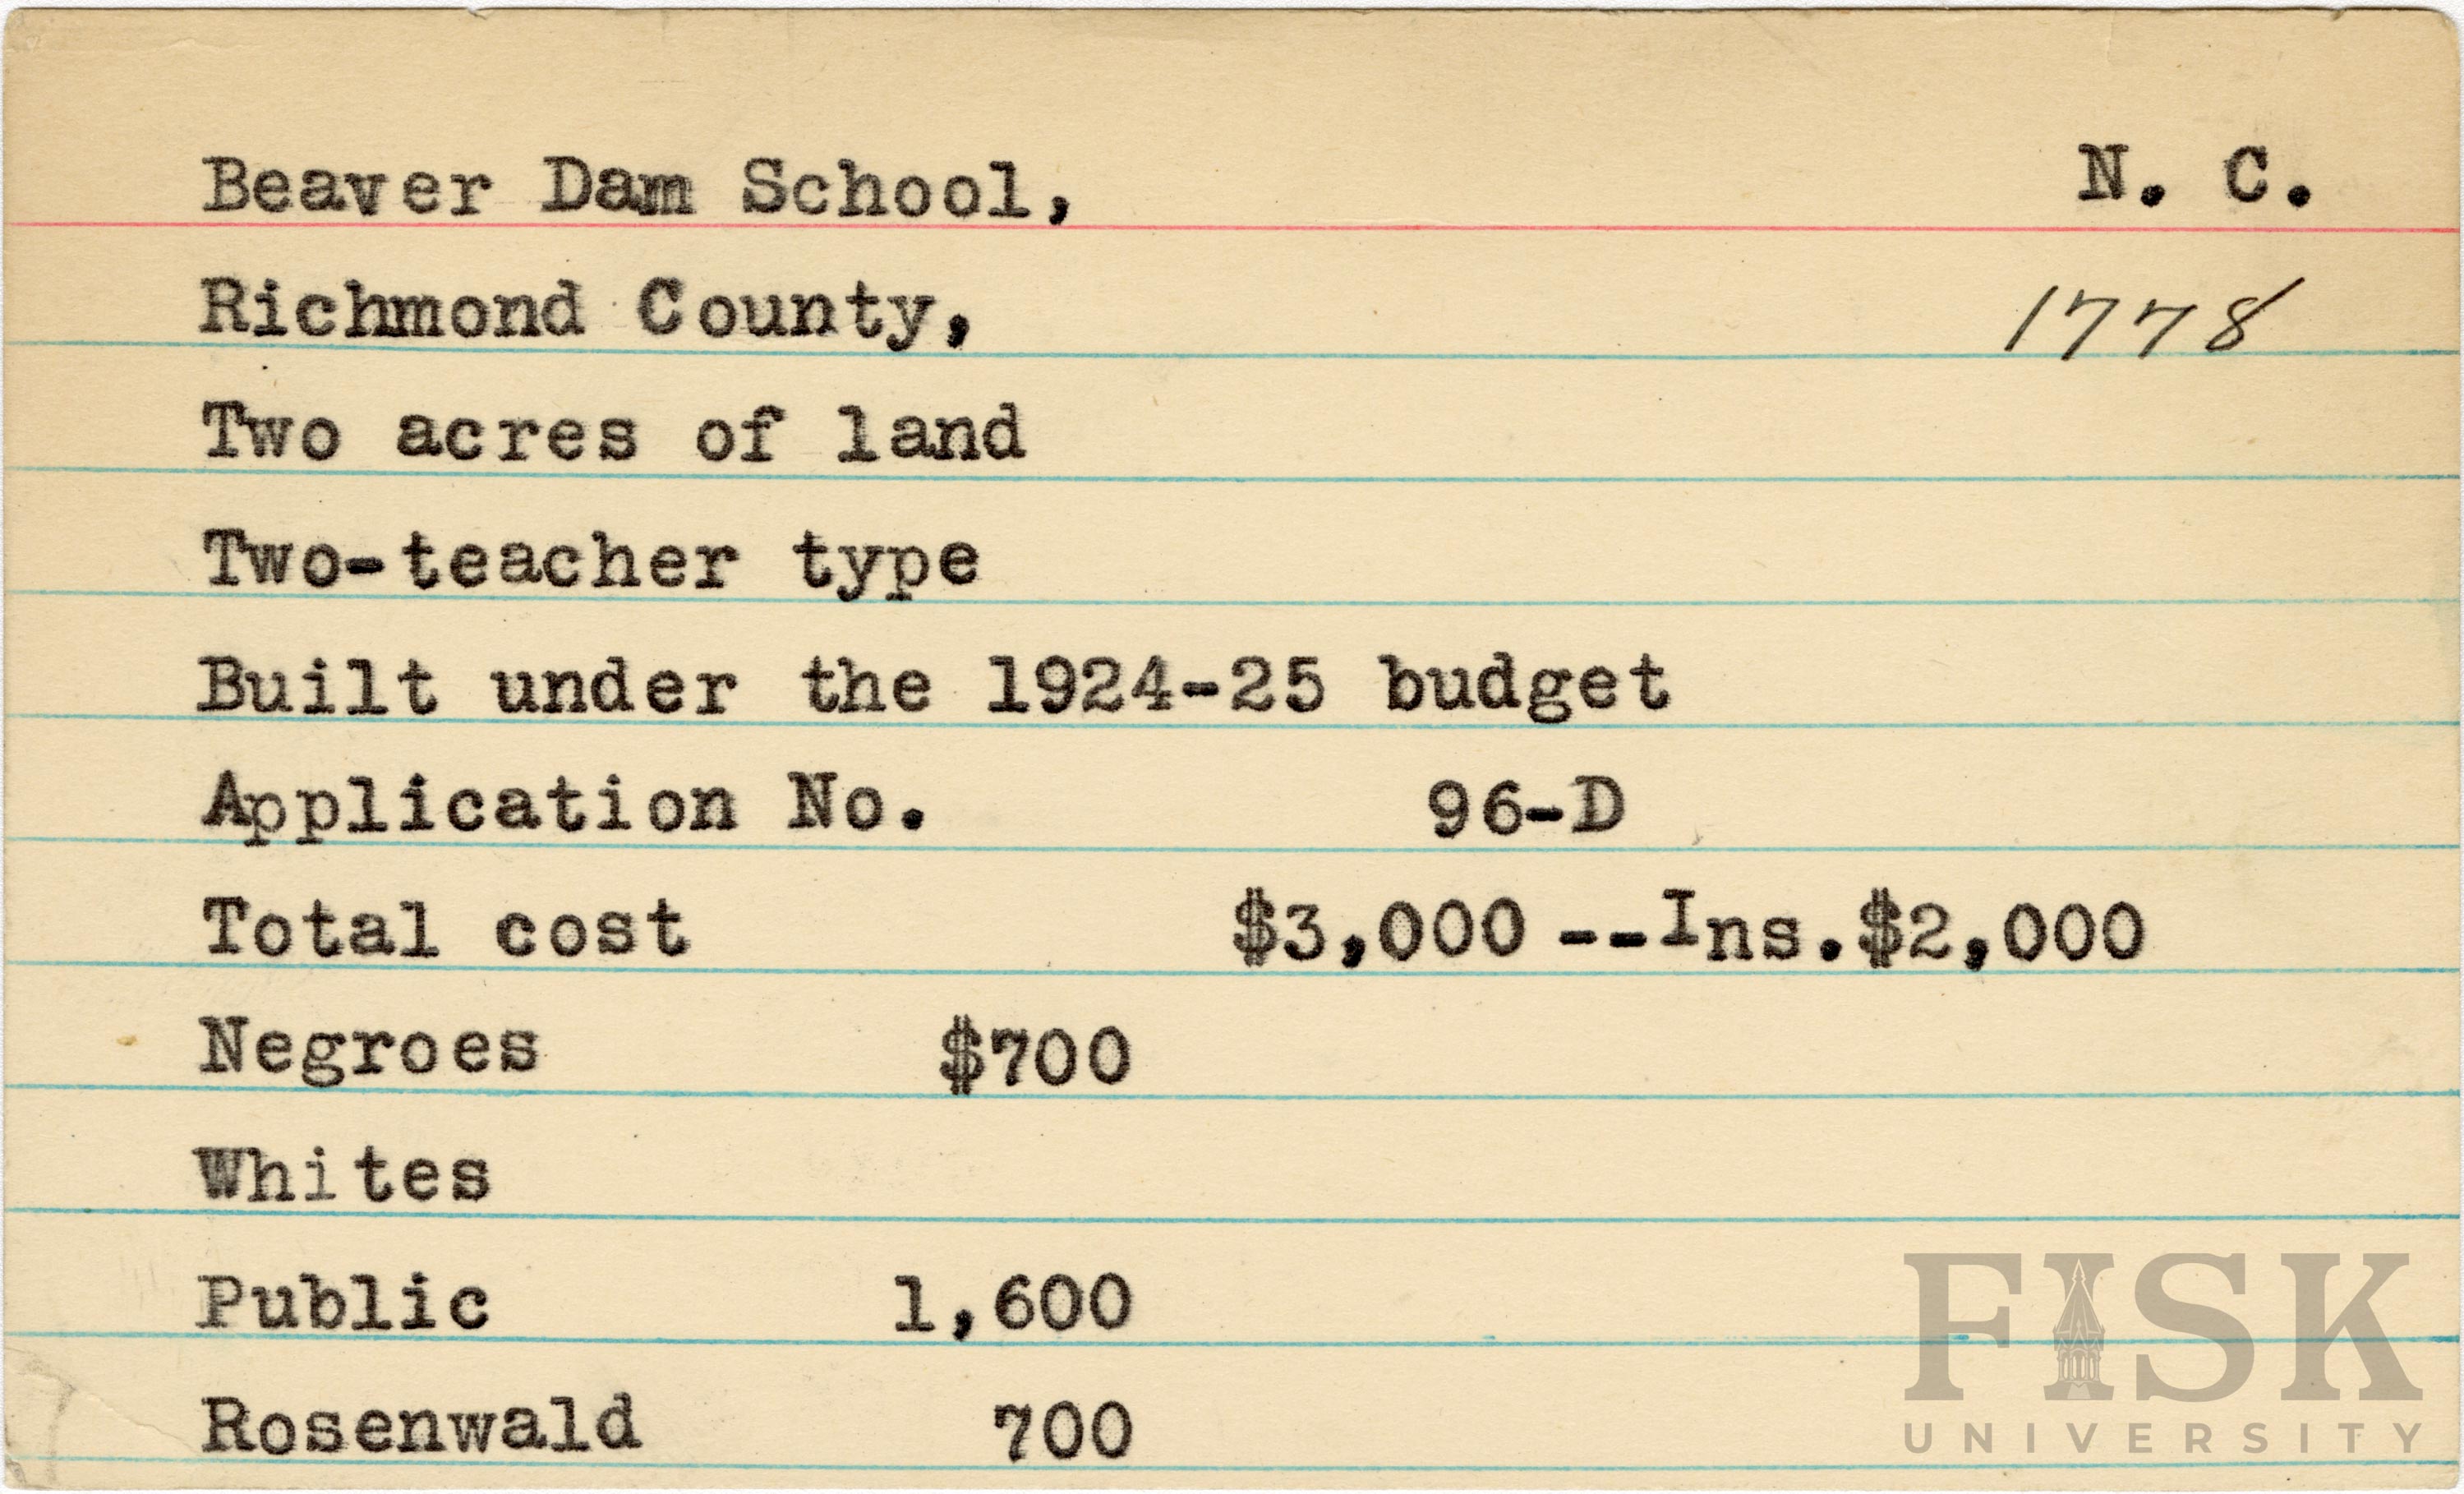 Beaver Dam School, N. C.
Richmond County, 1778
Two acres of land
Two-teacher type
Built under the 1924-25 budget
Application No. 96-D
Total cost $3,000 --Ins.$2,000
Negroes $700
Whites
Public 1,600
Rosenwald 700
FISK
UNIVERSITY